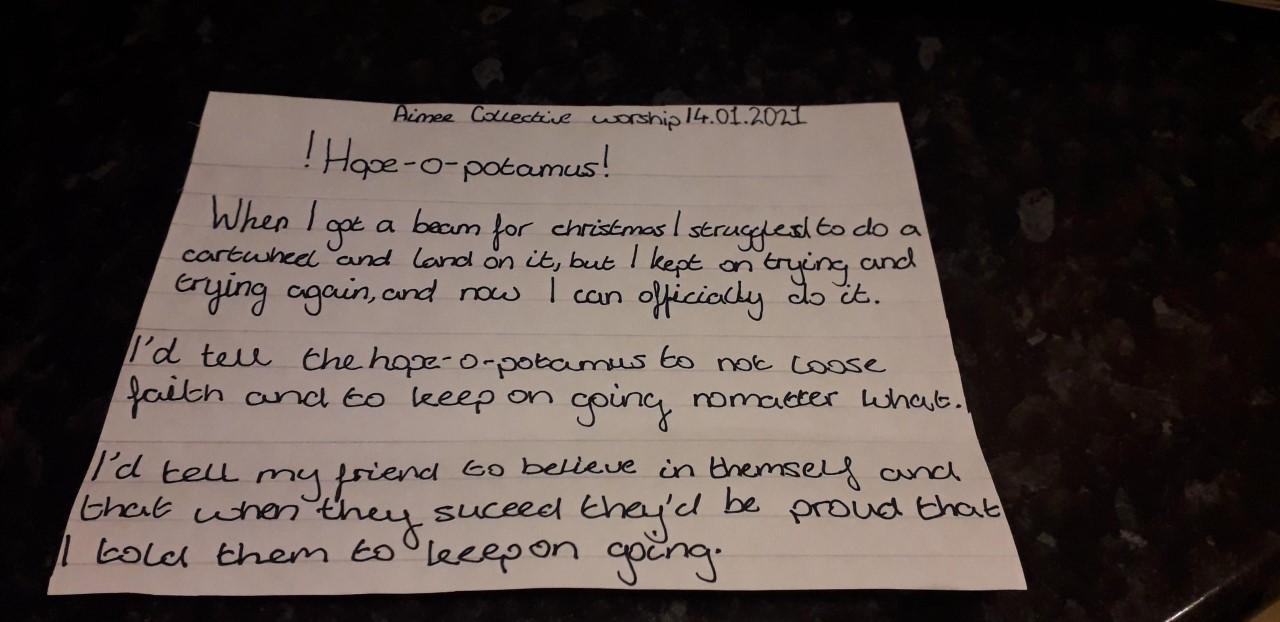 Aimee Collective worship 14.01.2021
!Hope-o-potamus!
When I got a beam for christmas I struggled to do a
cartwheel and land on it, but I kept on trying and
trying again, and now I can officially do it.
I'd tell the hope-o-potamus to not loose
faith and to keep on going nomatter what.
I'd tell my friend to believe in themself and
that when they suceed they'd be proud that
I told them to keep on going.